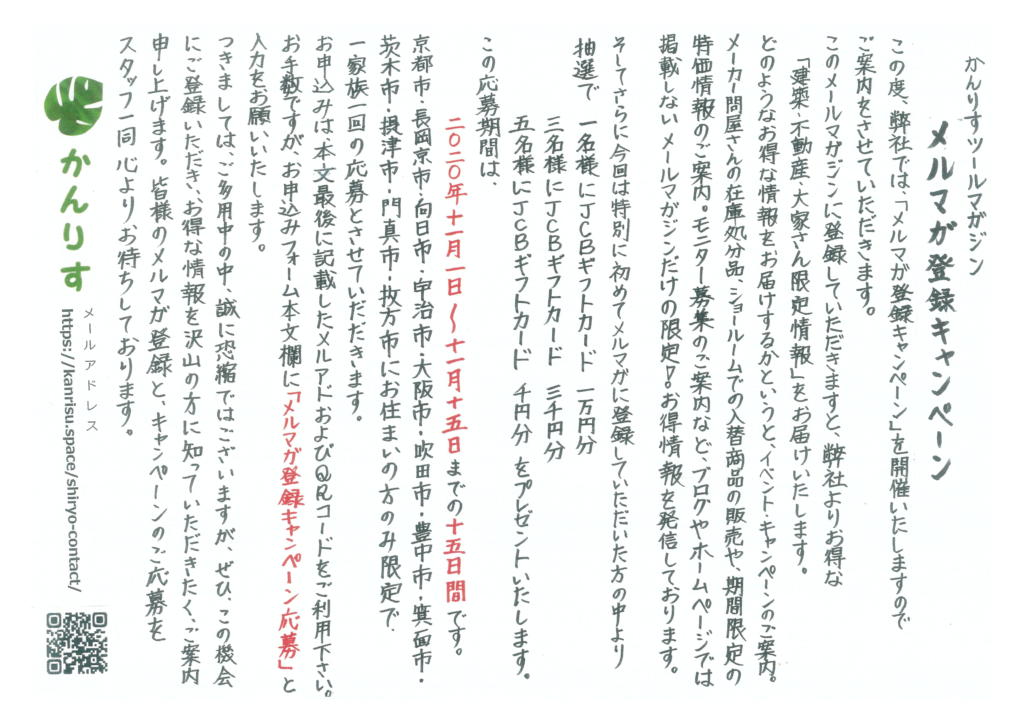 かんりすツールマガジン
メルマガ登録キャンペーン
この度、弊社では、「メルマガ登録キャンペーン」を開催いたしますので
ご案内をさせていただきます。
このメールマガジンに登録していただきますと、弊社よりお得な
「建築・不動産、大家さん限定情報」をお届けいたします。
どのようなお得な情報をお届けするかというと、イベント・キャンペーンのご案内。
メーカー問屋さんの在庫処分品、ショールームでの入替商品の販売や、期間限定の
特価情報のご案内。モニター募集のご案内など、ブログやホームページでは
掲載しない メールマガジンだけの限定のお得情報を発信しております。
そしてさらに今回は特別に初めてメルマガに登録していただいた方の中より
抽選で 一名様にJCBギフトカード 一万円分
三名様にJCBギフトカード 三千円分
五名様にJCBギフトカード 千円分 をプレゼントいたします。
この応募期間は、
二〇二〇年十一月一日〜十一月十五日までの十五日間です。
京都市・長岡京市・向日市・宇治市・大阪市・吹田市・豊中市・箕面市・
茨木市・摂津市・門真市・枚方市にお住まいの方のみ限定で、
一家族一回の応募とさせていただだきます。
お申込みは、本文最後に記載したメルアドおよびQRコードをご利用下さい。
お手数ですが、お申込みフォーム本文欄に「メルマガ登録キャンペーン応募」と
入力をお願いいたします。
つきましては、ご多用中の中、誠に恐縮ではございますが、ぜひ、この機会
にご登録いただき、お得な情報を沢山の方に知っていただきたく、ご案内
申し上げます。皆様のメルマガ登録と、キャンペーンのご応募を
スタッフ一同心よりお待ちしております。
かんりす
メールアドレス
https://kanrisu.space/shiryo-contact/